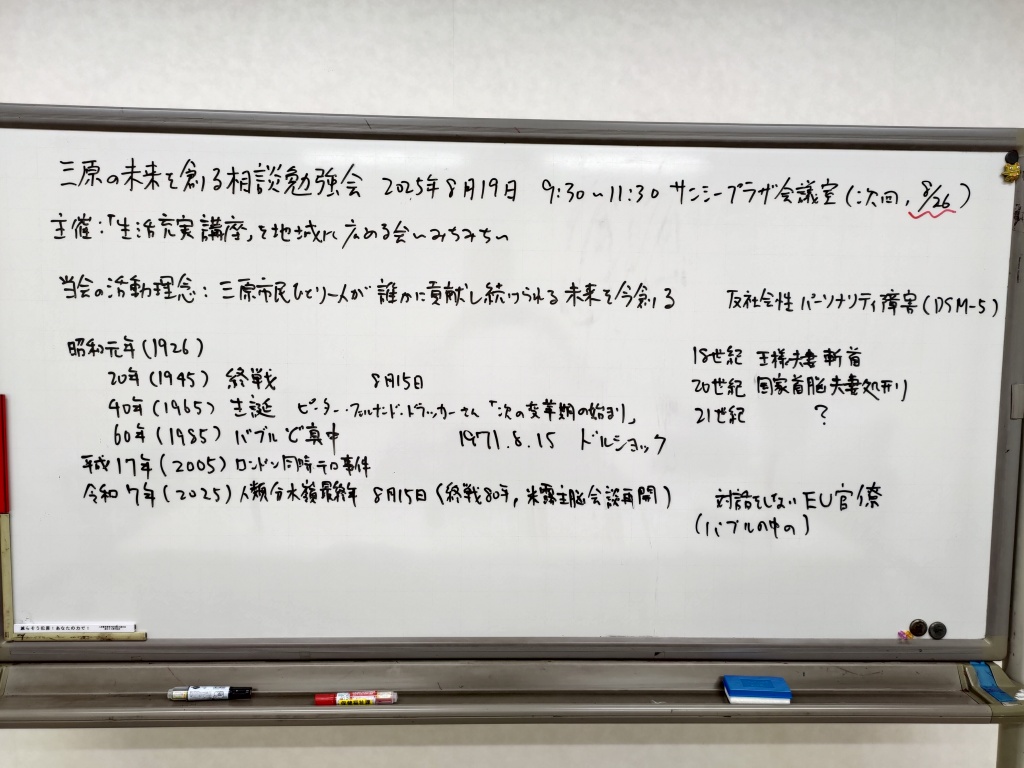 三原の未来を創る相談勉強会 2025年8月19日 9:30〜11:30 サンシープラザ会議室(次回, 8/26)
主催:「生活充実講座」を地域に広める会いみちみちい
当会の活動理念:三原市民ひとり一人が誰かに貢献し続けられる未来を今創る
反社会性パーソナリティ障害(DSM-5)
昭和元年(1926)
20年(1945) 終戦 8月15日
40年(1965) 生誕 ピーター・フェルナンド・ドラッカーさん「次の変革期の始まり」
60年(1985) バブルど真中 1971.8.15 ドルショック
平成17年(2005) ロンドン同時テロ事件
令和7年(2025) 人類分水嶺最終年 8月15日(終戦80年, 米露主脳会談再開)
18世紀 王様夫妻斬首
20世紀 国家首脳夫妻処刑
21世紀 ?
対話をしないEU官僚
(バブルの中の)